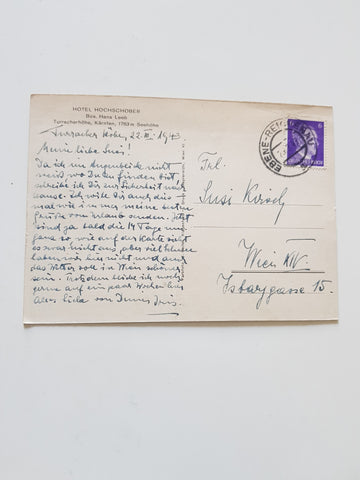 HOTEL HOCHSCHOBER
Bes. Hans Leeb
Turracherhöhe, Kärnten, 1763 m Seehöhe
Turracher Höhe, 22.III.1943
Meine liebe Susi!
Da ich im Augenblick nicht
weiß wo Du zu finden bist,
schreibe ich Dir zur Sicherheit nach
hause. Ich will Dir auch dies-
mal wie immer meine besten
Grüße vom Urlaub senden. Jetzt
sind ja bald die 14 Tage um
ganz so wie auf der Karte sieht
es zwar nicht aus, aber viel
haben wir hier nicht und auch
das Wetter soll in Wien schöner
sein. Trotzdem bliebe ich noch
gerne auf ein paar Wochen hier
Alles liebe von Deiner
Frl.
Susi Kirsch
Wien XIV.
Isbarygasse 15.
EBENE-REICHENAU
6